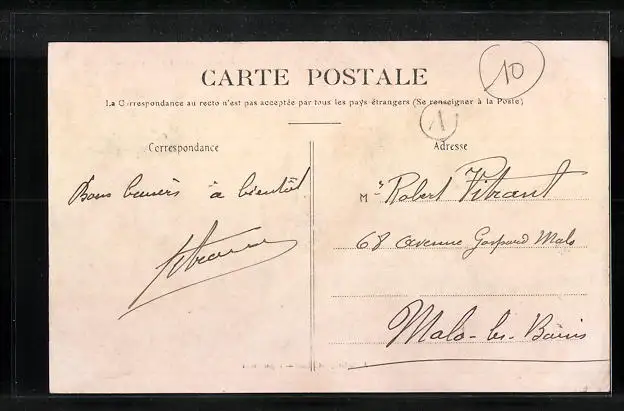 CARTE POSTALE
10
La Correspondance au recto n'est pas acceptée par tous les pays étrangers (Se renseigner à la Poste)
1
Correspondance
Bons baisers à bientôt
Adresse
Mr Robert Vitrant
68 avenue Gaspard Malo
Malo-les-Bains